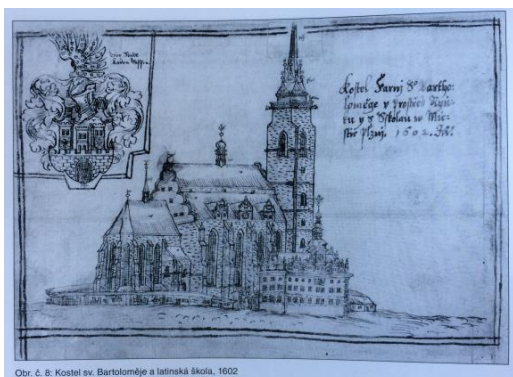 Kostel Farnj S° Bartho-
loměge y prostřed Ryn-
ku y s Sskolau w Mies-
stie Plznj. 1602.
Obr. č. 8: Kostel sv. Bartoloměje a latinská škola, 1602